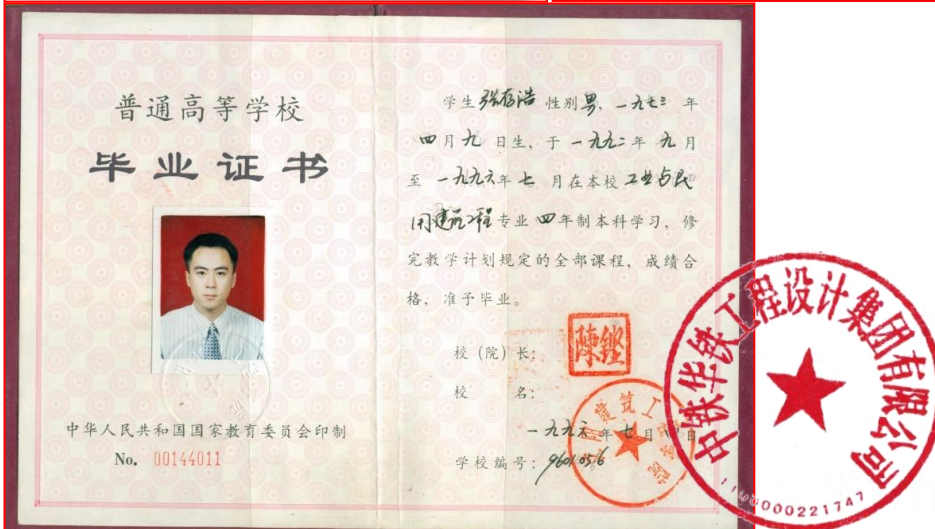 普通高等学校
毕业证书
中华人民共和国国家教育委员会印制
No. 00144011
学生 张存浩 性别 男, 一九七三 年
四 月 九 日生, 于 一九九二 年 九 月
至 一九九六 年 七 月在本校 工业与民
用建筑工程 专业 四 年制本科学习, 修
完教学计划规定的全部课程, 成绩合
格, 准予毕业。
校（院）长:
陳鏗
校 名:
建筑工
一九九六 年 七 月 日
学校编号: 960105
中铁华铁工程设计集团有限公司
000221747